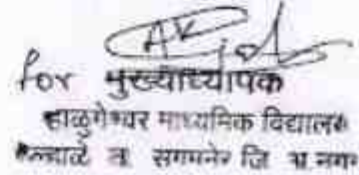 for मुख्याध्यापक
हाळुगेश्वर माध्यमिक विद्यालय
ता संगमनेर जि अ नगर